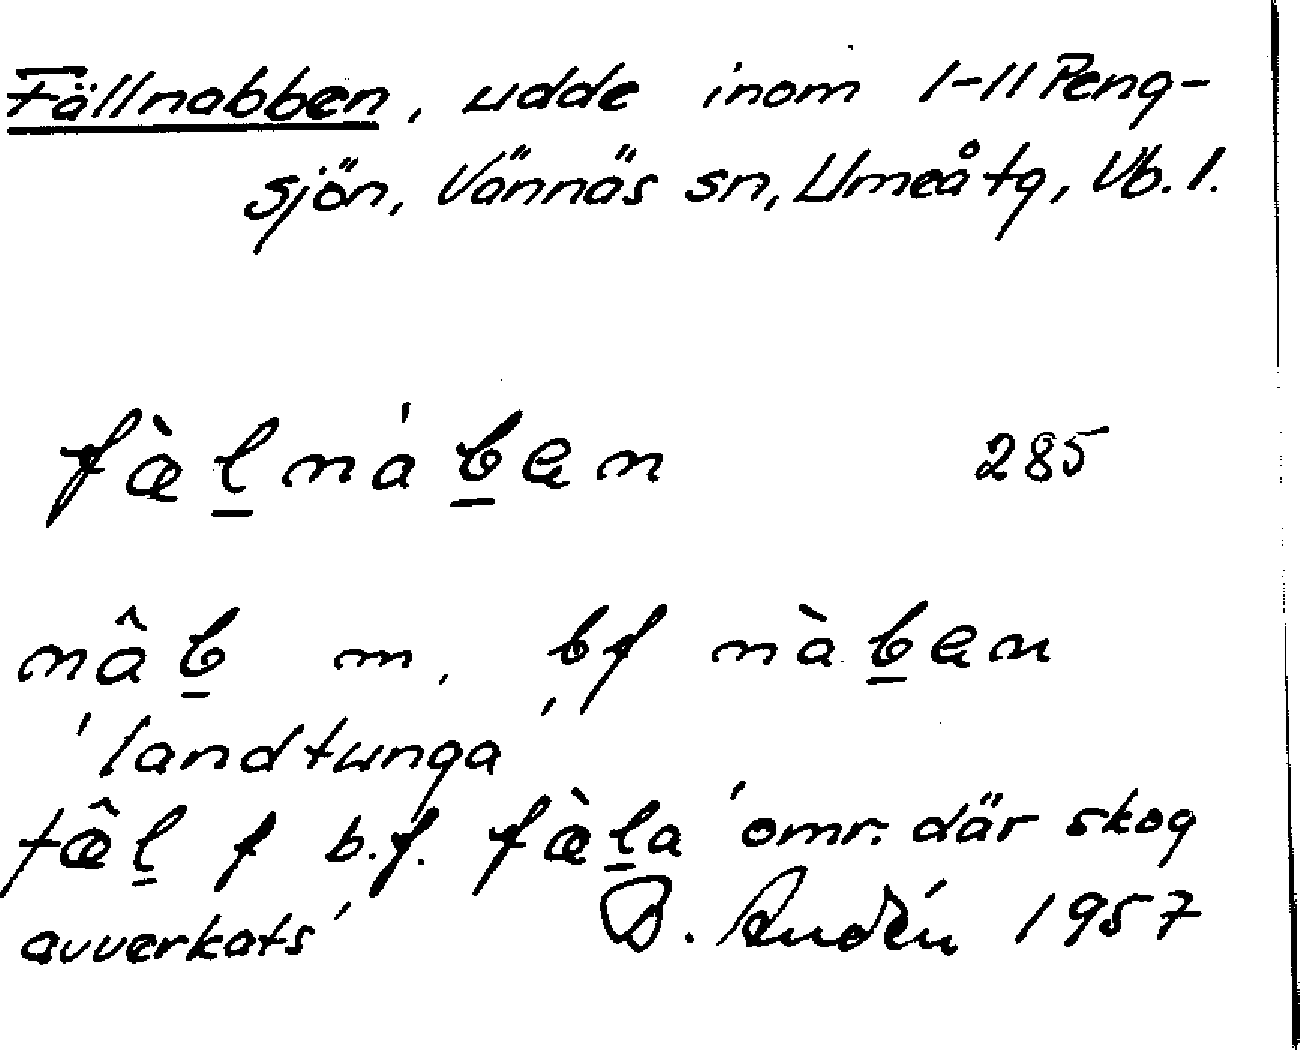 Fällnabben, udde inom 1-11 Peng-
sjön, Vännäs sn, Umeå tg, Vb. l.
fæ̀l̲náb̲ən 285
nâb̲ m. bf nàb̲ən
'landtunga'
fæ̂l̲ f b.f. fæ̀l̲a 'omr. där skog
avverkats' B. Andén 1957